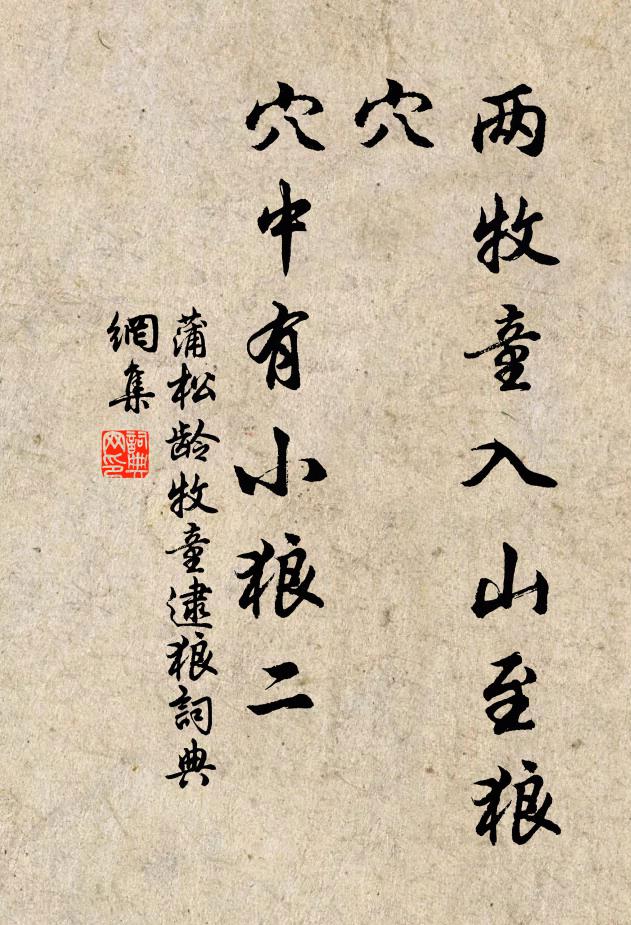 两牧童入山至狼
穴
穴中有小狼二
蒲松龄牧童逮狼詞典
網集
詞典
网印